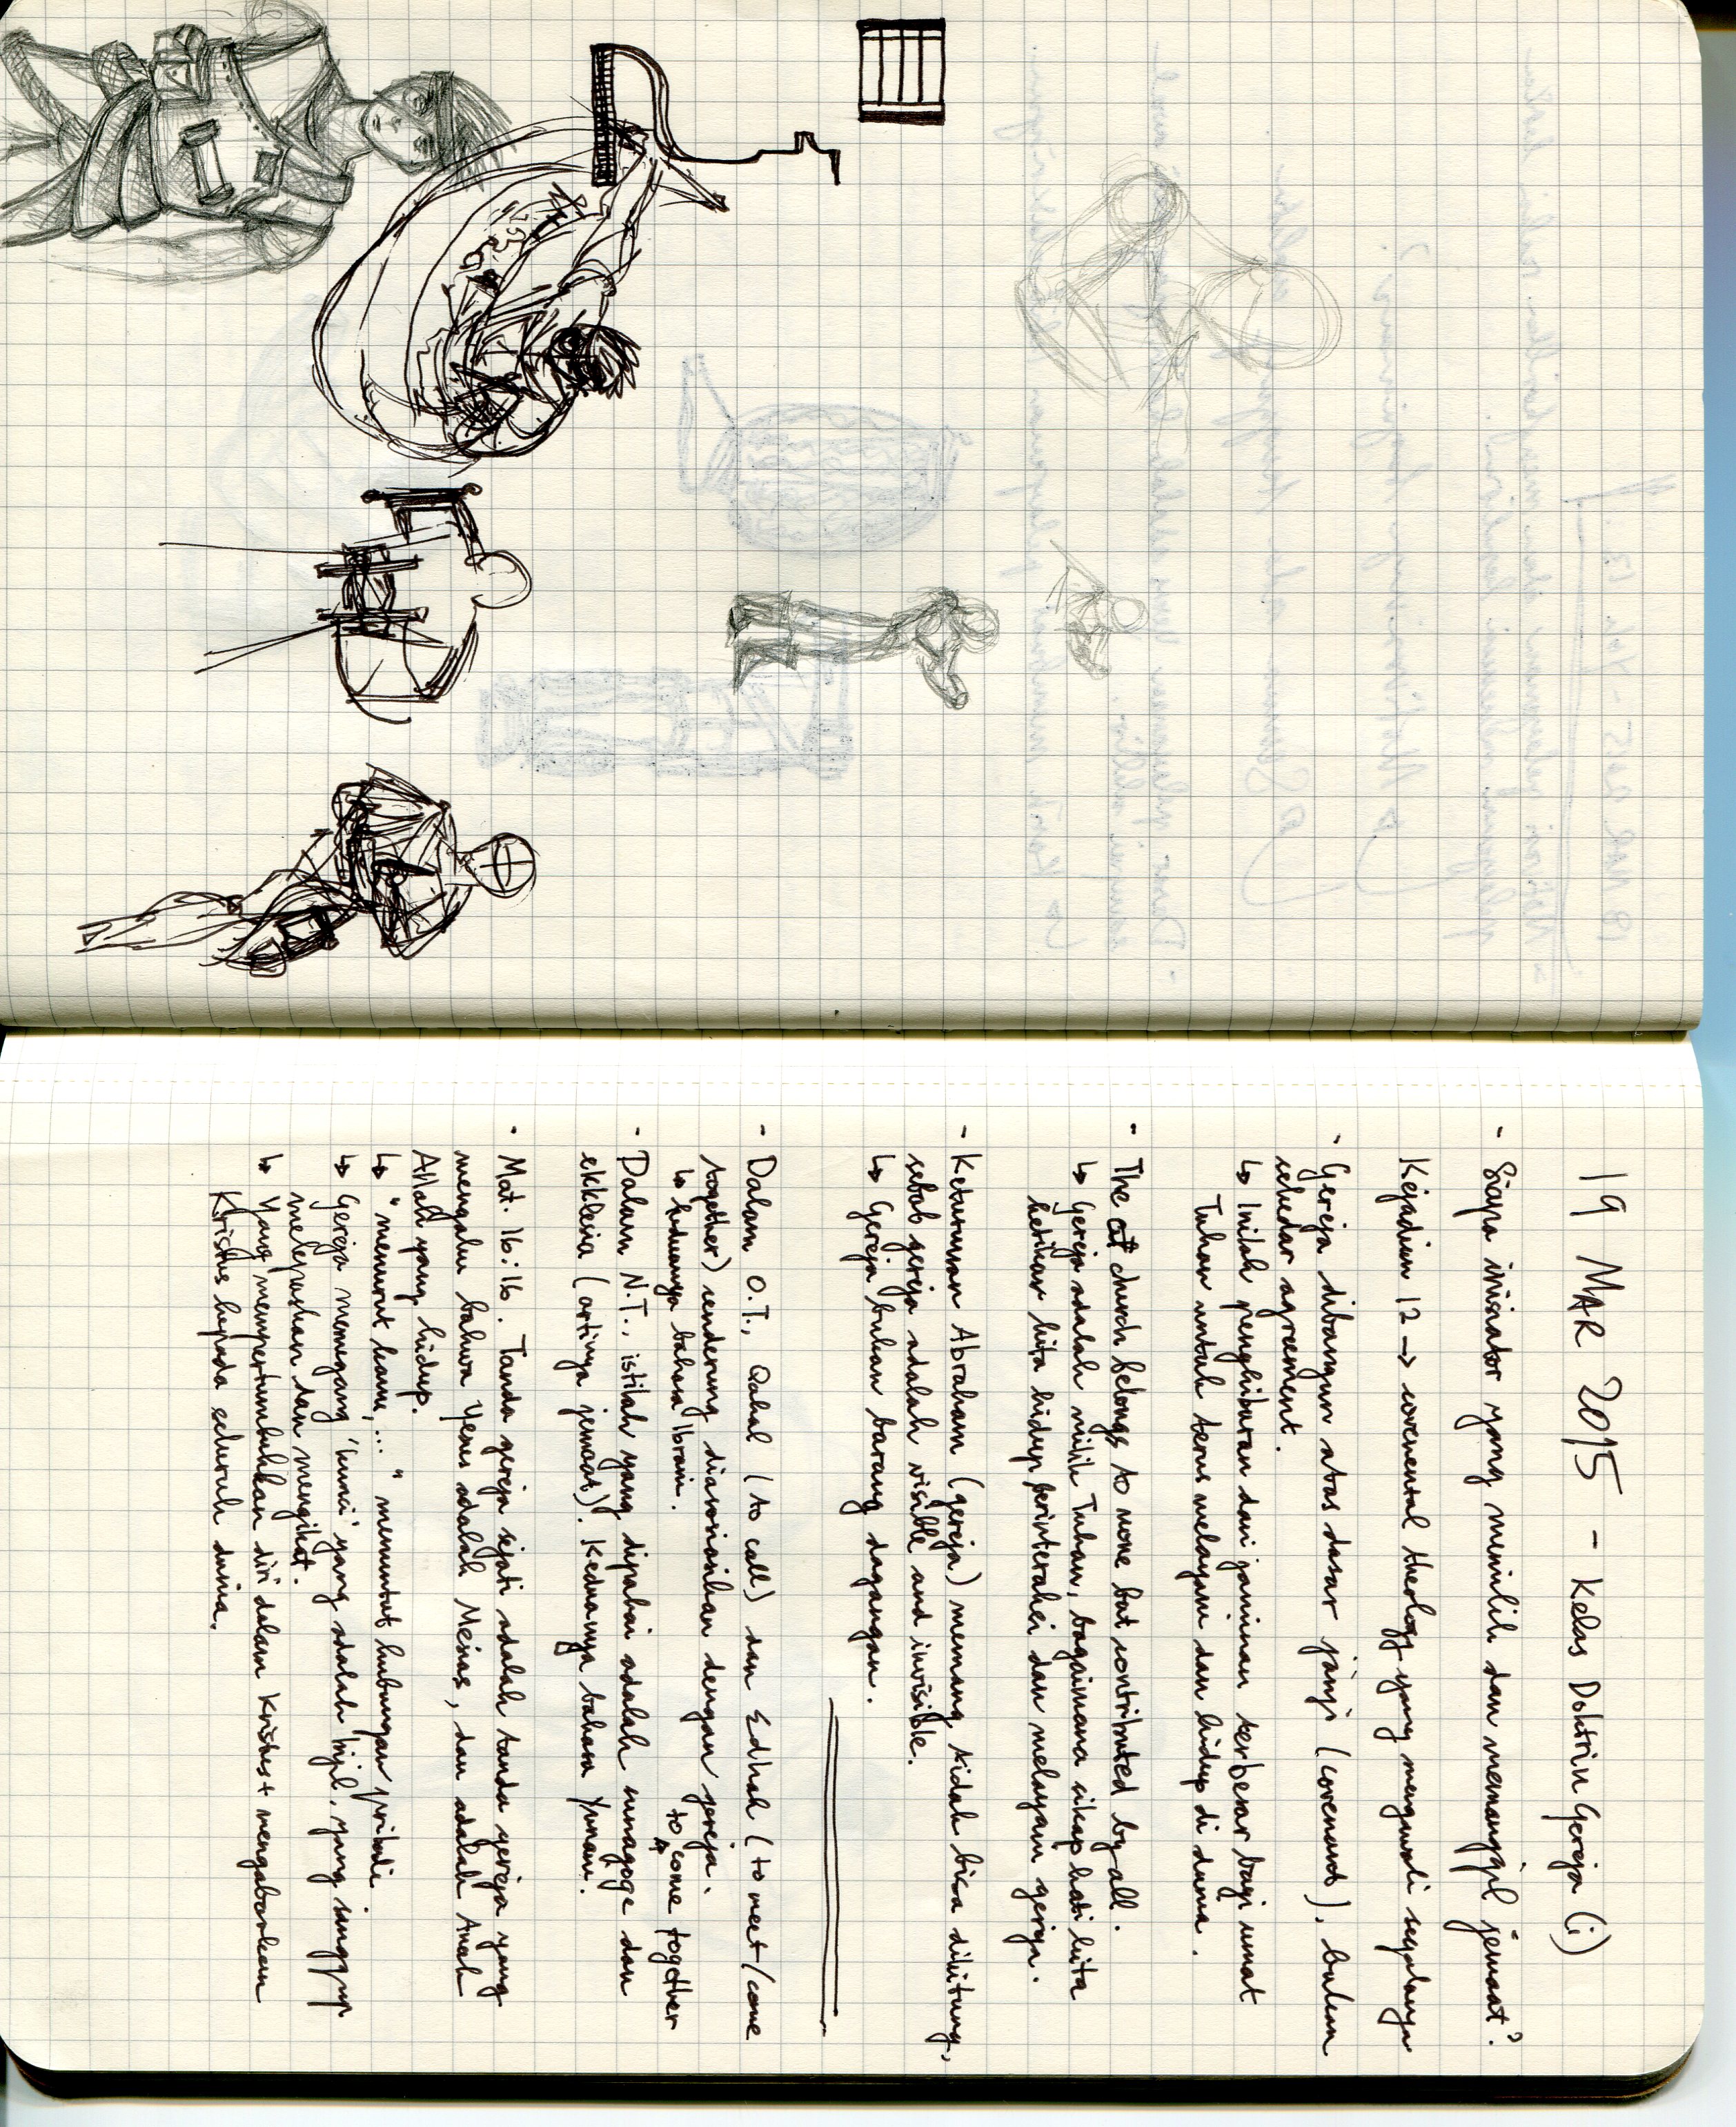 19 MAR 2015 - Kelas Doktrin Gereja (i)
- Siapa inisiator yang memilih dan memanggil jemaat?
Kejadian 12 → covenental theology yang mengawali segalanya
- Gereja dibangun atas dasar janji (covenant), bukan
sekedar agreement.
↳ Inilah penghiburan dan jaminan terbesar bagi umat
Tuhan untuk terus melayani dan hidup di dunia.
- The church belongs to none but contributed by all.
↳ Gereja adalah milik Tuhan, bagaimana sikap hati kita
ketika kita hidup berinteraksi dan melayani gereja.
- Keturunan Abraham (gereja) memang tidak bisa dihitung,
sebab gereja adalah visible and invisible.
↳ Gereja bukan barang dagangan.
- Dalam O.T., Qahal (to call) dan Edhah (to meet/come
together) cenderung diasosiasikan dengan gereja.
↳ keduanya bahasa Ibrani.
to come together
- Dalam N.T., istilah yang dipakai adalah sunagoge dan
ekklesia (artinya jemaat). Keduanya bahasa Yunani.
- Mat. 16:16. Tanda gereja sejati adalah tanda gereja yang
mengaku bahwa Yesus adalah Mesias, dan adalah Anak
Allah yang hidup.
↳ "menurut kamu,..." menuntut hubungan pribadi.
↳ Gereja memegang 'kunci' yang adalah Injil, yang sanggup
melepaskan dan mengikat.
↳ Yang mempertumbuhkan diri dalam Kristus + mengabarkan
Kristus kepada seluruh dunia.